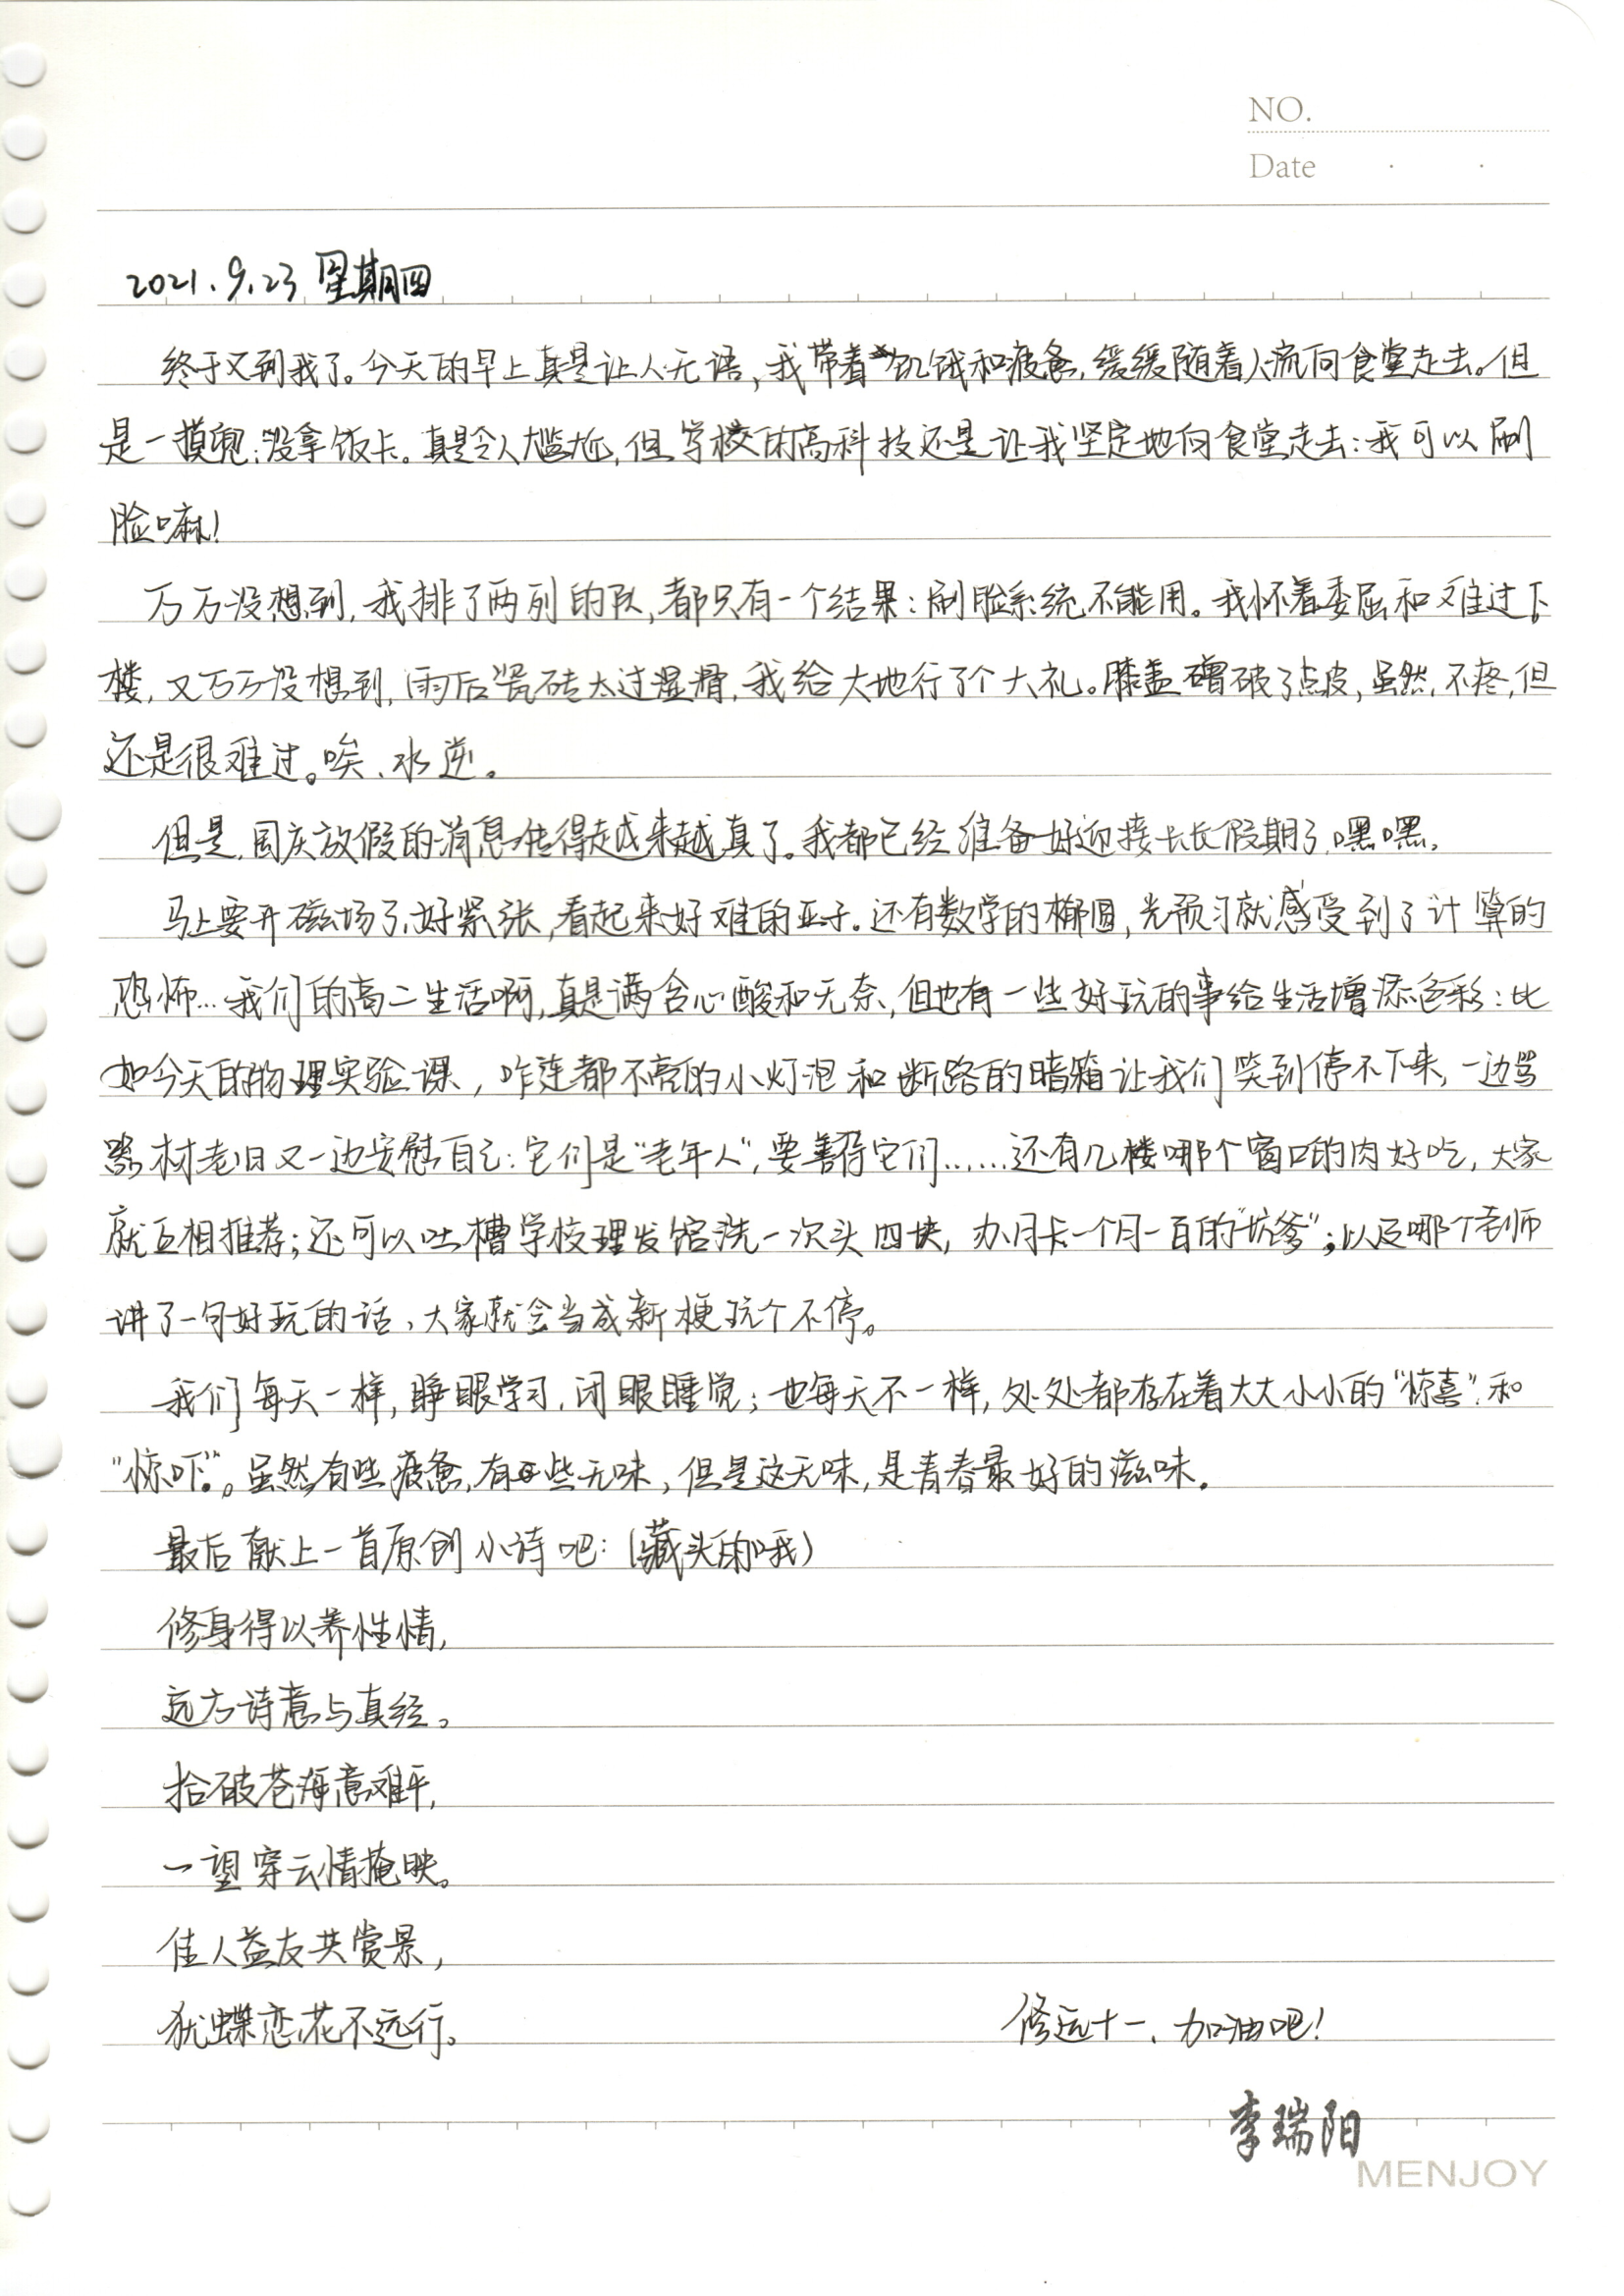 NO.
Date
2021.9.23 星期四
终于又到我了。今天的早上真是让人无语,我带着饥饿和疲惫,缓缓随着人流向食堂走去。但
是一摸兜:没拿饭卡。真是令人尴尬,但学校的高科技还是让我坚定地向食堂走去:我可以刷
脸嘛!
万万没想到,我排了两列的队,都只有一个结果:刷脸系统不能用。我怀着委屈和难过下
楼,又万万没想到,雨后瓷砖太过湿滑,我给大地行了个大礼。膝盖磨破了点皮,虽然不疼,但
还是很难过。唉、水逆。
但是,国庆放假的消息传得越来越真了。我都已经准备好迎接长长假期了,嘿嘿。
马上要开磁场了,好紧张,看起来好难的亚子。还有数学的椭圆,光预习就感受到了计算的
恐怖...我们的高二生活啊,真是满含心酸和无奈,但也有一些好玩的事给生活增添色彩:比
如今天的物理实验课,咋连都不亮的小灯泡和断路的暗箱让我们笑到停不下来,一边骂
器材老旧又一边安慰自己:它们是“老年人”,要善待它们......还有几楼哪个窗口的肉好吃,大家
就互相推荐;还可以吐槽学校理发馆洗一次头四块,办月卡一个月一百的“坑爹”;以及哪个老师
讲了一句好玩的话,大家就会当成新梗玩个不停。
我们每天一样,睁眼学习,闭眼睡觉;也每天不一样,处处都存在着大大小小的“惊喜”和
“惊吓”。虽然有些疲惫,有些无味,但是这无味,是青春最好的滋味。
最后献上一首原创小诗吧:(藏头的哦)
修身得以养性情,
远方诗意与真经。
拾破苍海意难平,
一望穿云情掩映。
佳人益友共赏景,
犹蝶恋花不远行。
修远十一、加油吧!
李瑞阳
MENJOY